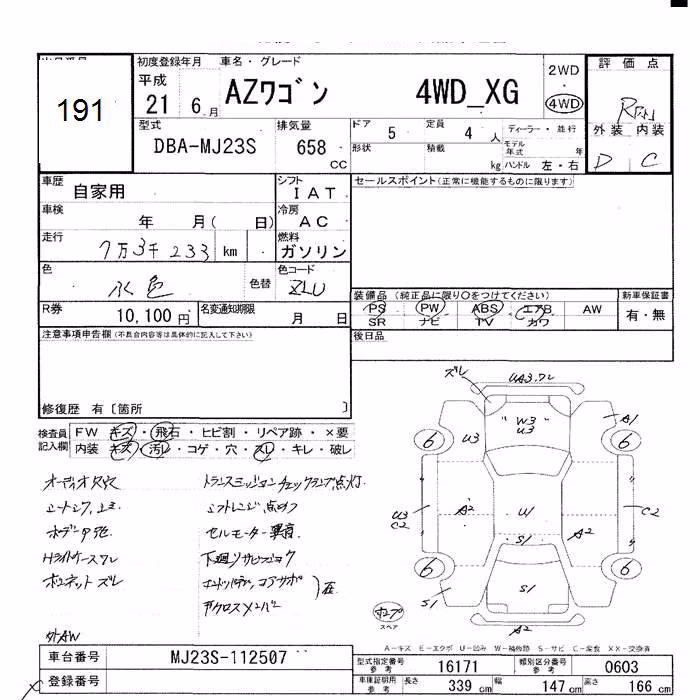 初度登録年月 車名・グレード
平成 21 6月 AZワゴン 4WD_XG 2WD 4WD
評価点
191
外装 内装
D C
型式 排気量 ドア 5 定員 4人 ディーラー・並行
DBA-MJ23S 658 CC 形状 積載 kg モデル年式 年
ハンドル 左・右
車歴 自家用 シフト IAT セールスポイント(正常に機能するものに限ります)
車検 年 月( 日) 冷房 AC
走行 7万3千233 km 燃料 ガソリン
色 水色 色替 色コード ZLU
装備品(純正品に限り○をつけてください) 新車保証書
PS PW ABS エアB AW 有・無
SR ナビ TV カワ
R券 10,100円 名変通知期限 月 日
後日品
注意事項申告欄(不具合内容等は具体的に記入して下さい)
修復歴 有〔箇所 〕
検査員記入欄 FW キズ・飛石・ヒビ割・リペア跡・×要
内装 キズ・汚レ・コゲ・穴・スレ・キレ・破レ
トランスミッションチェックランプ点灯
ボデー
セルモーター異音
下廻リサビ
ボンネット ズレ
コアサポ
在
外AW
ズレ
W3
U3
U3
A1
6 6
U3
C2
A2
U1
A2
C2
S1
6 6
S1
S1
A2
スペア
A-キズ E-エクボ U-凹み W-補修跡 S-サビ C-腐食 XX-交換済
車台番号 MJ23S-112507
登録番号
型式指定番号 参考 16171 類別区分番号 参考 0603
車庫証明用 参考 長さ 339 cm 幅 147 cm 高さ 166 cm